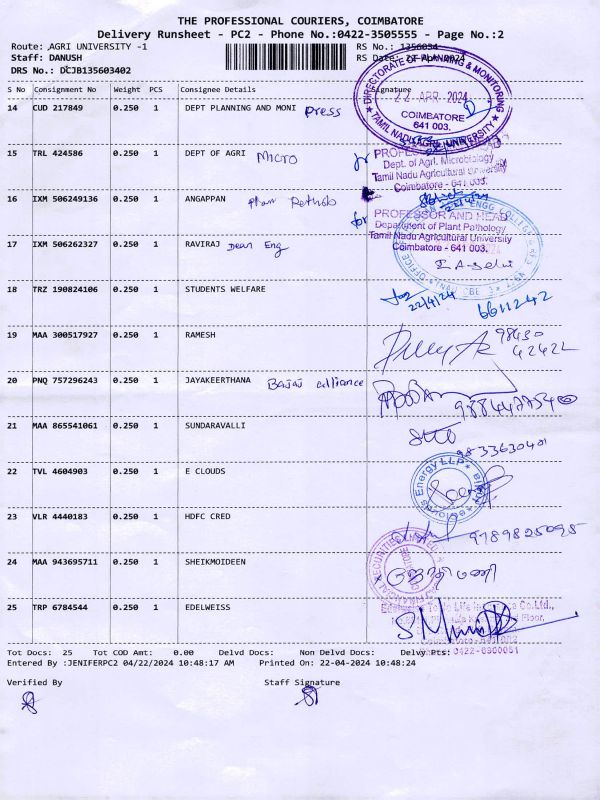 THE PROFESSIONAL COURIERS, COIMBATORE
Delivery Runsheet - PC2 - Phone No.:0422-3505555 - Page No.:2
Route: AGRI UNIVERSITY -1 RS No.: 1356034
Staff: DANUSH RS Date: 22-Apr-2024
DRS No.: DCJB135603402
S No Consignment No Weight PCS Consignee Details Signature
DIRECTORATE OF PLANNING & MONITORING
22 APR 2024
COIMBATORE
641 003.
TAMIL NADU AGRI. UNIVERSITY
14 CUD 217849 0.250 1 DEPT PLANNING AND MONI Press
15 TRL 424586 0.250 1 DEPT OF AGRI MICRO for
Dept. of Agrl. Microbiology
Tamil Nadu Agricultural University
Coimbatore - 641 003.
16 IXM 506249136 0.250 1 ANGAPPAN for
PROFESSOR AND HEAD
Department of Plant Pathology
Tamil Nadu Agricultural University
Coimbatore - 641 003.
17 IXM 506262327 0.250 1 RAVIRAJ Dean Eng
18 TRZ 190824106 0.250 1 STUDENTS WELFARE
22/4/24 6611242
19 MAA 300517927 0.250 1 RAMESH 98430
42422
20 PNQ 757296243 0.250 1 JAYAKEERTHANA Bajaj alliance
21 MAA 865541061 0.250 1 SUNDARAVALLI
9833630401
22 TVL 4604903 0.250 1 E CLOUDS
Energy LLP
23 VLR 4440183 0.250 1 HDFC CRED 9789825095
24 MAA 943695711 0.250 1 SHEIKMOIDEEN
25 TRP 6784544 0.250 1 EDELWEISS
Tot Docs: 25 Tot COD Amt: 0.00 Delvd Docs: Non Delvd Docs: Delvy Pts:
Entered By :JENIFERPC2 04/22/2024 10:48:17 AM Printed On: 22-04-2024 10:48:24
Verified By Staff Signature